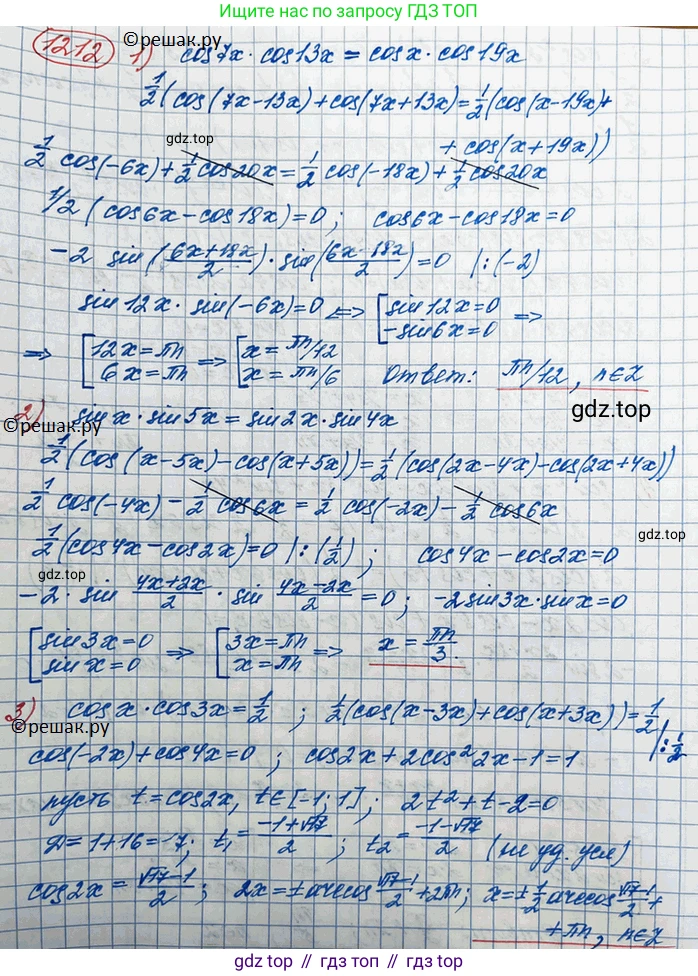 Больше решебников по запросу ГДЗ ТОП
1212 ©решак.ру 1) cos7x · cos13x = cosx · cos19x
1/2(cos(7x-13x)+cos(7x+13x)=1/2(cos(x-19x)+
+ cos(x+19x))
gdz.top
1/2 cos(-6x)+1/2 cos20x = 1/2 cos(-18x)+1/2 cos20x
1/2 (cos6x-cos18x)=0; cos6x-cos18x=0
gdz.top
-2 sin((6x+18x)/2)·sin((6x-18x)/2)=0 |:(-2)
sin12x · sin(-6x)=0 <=> [sin12x=0 -sin6x=0 =>
=> [12x=πn 6x=πn => [x=πn/12 x=πn/6 Ответ: πn/12, n∈Z
gdz.top
2) sinx · sin5x = sin2x · sin4x
©решак.ру
1/2(cos(x-5x)-cos(x+5x))=1/2(cos(2x-4x)-cos(2x+4x))
1/2 cos(-4x) - 1/2 cos6x = 1/2 cos(-2x) - 1/2 cos6x
1/2(cos4x-cos2x)=0 |:(1/2); cos4x-cos2x=0
gdz.top
gdz.top
-2 · sin (4x+2x)/2 · sin (4x-2x)/2 = 0; -2sin3x·sinx=0
[sin3x=0 sinx=0 => [3x=πn x=πn => x = πn/3.
gdz.top
3) cosx · cos3x = 1/2; 1/2(cos(x-3x)+cos(x+3x))=1/2 |:1/2
©решак.ру
cos(-2x)+cos4x=0; cos2x+2cos²2x-1=1
пусть t=cos2x, t∈[-1;1]; 2t²+t-2=0
gdz.top
Д=1+16=17; t₁=(-1+√17)/2; t₂=(-1-√17)/2 (не уд. усл)
cos2x=(√17-1)/2; 2x=±arccos (√17-1)/2 +2πn; x=±1/2 arccos (√17-1)/2 +
gdz.top
+πn, n∈Z
gdz.top
gdz.top // гдз.топ // gdz.top // гдз.топ // gdz.top